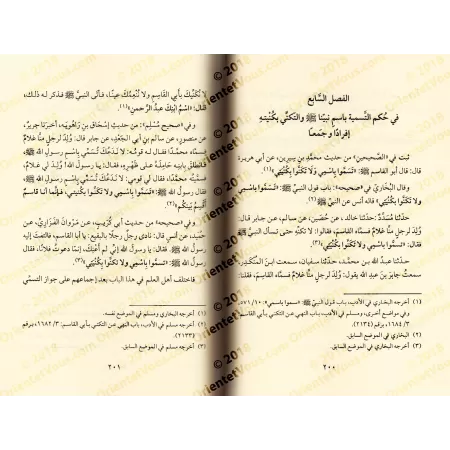 الفصل السَّابع
في حُكم التَّسمية باسم نبيِّنا ﷺ والتكنِّي بكُنْيَتهِ
إفرادًا وجَمعًا
ثبت في «الصَّحيحين» من حديث محمَّدِ بن سِيرِين، عن أبي هريرة
قال: قال أبو القاسِم ﷺ: «تَسَمَّوا بِاسْمِي وَلَا تَكَنَّوا بِكُنْيَتِي»(١).
وقال البُخاريُّ في «صحيحه»: باب قول النبيِّ ﷺ: «تَسَمَّوا بِاسْمِي
وَلَا تَكَنَّوا بِكُنْيَتِي» قاله أنس عن النبيِّ ﷺ(٢).
حدَّثنا مسَدَّدٌ: حدَّثنا خالد، عن حُصَين، عن سالم، عن جابر قال:
وُلِدَ لرجلٍ منَّا غلامٌ فسمَّاه القاسم، فقالوا: لا نكنيه حتى نسأل النبيَّ ﷺ،
فقال: «تَسَمَّوا بِاسْمِي وَلَا تَكَنَّوا بِكُنْيَتِي»(٣).
حدَّثنا عبد الله بن محمَّد: حدَّثنا سفيان، سمعت ابنَ المُنْكَدِر،
سمعتُ جابرَ بنَ عبدِ الله يقول: وُلِدَ لرجلٍ منَّا غلامٌ فسمَّاه القاسمَ، فقلنا:
(١) أخرجه البخاري في الأدب، باب قول النبيِّ ﷺ: «سموا باسمي» ١٠/ ٥٧١،
وفي مواضع أخرى، ومسلم في الأدب، باب النهي عن التكني بأبي القاسم
٣/ ١٦٨٤، برقم (٢١٣٤).
(٢) أخرجه البخاري في الموضع السابق.
(٣) أخرجه البخاري في الموضع السابق.
٢٠٠
لا نُكَنِّيكَ بأبي القَاسِم ولا نُنْعِمُكَ عينًا، فأتى النبيَّ ﷺ فذكر له ذلك،
قال: «اسْمُ ابْنِكَ عبدُ الرَّحمنِ»(١).
وفي «صحيح مسْلِم»: من حديث إسْحَاق بن رَاهُويَه، أخبَرَنا جرير،
عن منصور، عن سالم بن أبي الجَعْد، عن جابر قال: وُلِدَ لرجلٍ منَّا غلامٌ
فسمَّاه محمَّدًا، فقال له قومه: لا ندَعُكَ تُسَمِّي باسمِ رسولِ الله ﷺ،
فانطلَقَ بابنِه حاملَهُ على ظَهْرِه، فقال: يا رسولَ الله! وُلِدَ لي غلامٌ
فسمَّيتُه محمَّدًا، فقال لي قومي: لا ندَعُكَ تُسَمِّي باسمِ رسولِ الله ﷺ،
فقال رسول الله ﷺ: «تَسَمَّوا بِاسْمِي وَلَا تَكَنَّوا بِكُنْيَتِي، فَإنَّما أَنا قاسِمٌ
أَقْسِمُ بَيْنَكُم»(٢).
وفي «صحيحه» من حديث أبي كُرَيْب، عن مَرْوانَ الفَزَارِيِّ، عن
حُمَيْدٍ، عن أنسٍ قال: نادى رجلٌ رجلًا بالبقيع: يا أبا القاسم، فالتفتَ إليه
رسولُ الله ﷺ، فقال: يا رسولَ الله! إني لم أَعْنِكَ، إنَّما دعوتُ فلانًا، فقال
رسولُ الله ﷺ: «تَسَمَّوا بِاسْمِي وَلَا تَكَنَّوا بِكُنْيَتِي»(٣).
فاختلف أهل العلم في هذا الباب بعد إجماعهم على جوازِ التسمِّي
(١) أخرجه مسلم في الموضع نفسه.
(٢) أخرجه مسلم في الأدب، باب النهي عن التكني بأبي القاسم: ٣/ ١٦٨٢، برقم
(٢١٣٣).
(٣) أخرجه مسلم في الموضع السابق.
٢٠١
OrientetVous.com © 2018